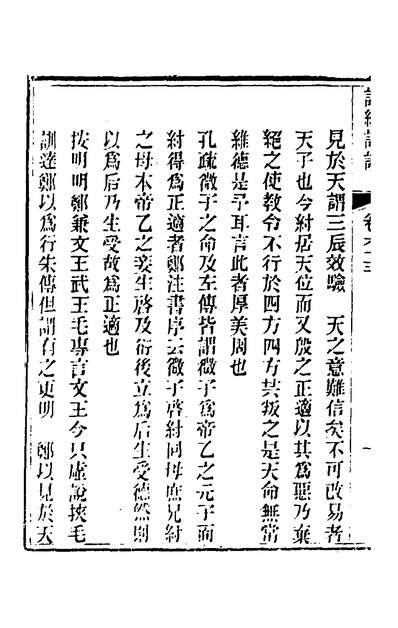 見於天謂三辰效驗　天之意難信矣不可改易者
天子也今紂居天位而又殷之正適以其爲惡乃棄
絕之使敎令不行於四方四方共叛之是天命無常
維德是予耳言此者厚美周也
孔疏微子之命及左傳皆謂微子爲帝乙之元子而
紂得爲正適者鄭注書序云微子啓紂同母庶兄紂
之母本帝乙之妾生啓及衍後立爲后生受德然則
以爲后乃生受故爲正適也
按明明鄭兼文王武王毛專言文王今只虛說挾毛
訓達鄭以爲行朱傳但謂有之更明　鄭以見於天